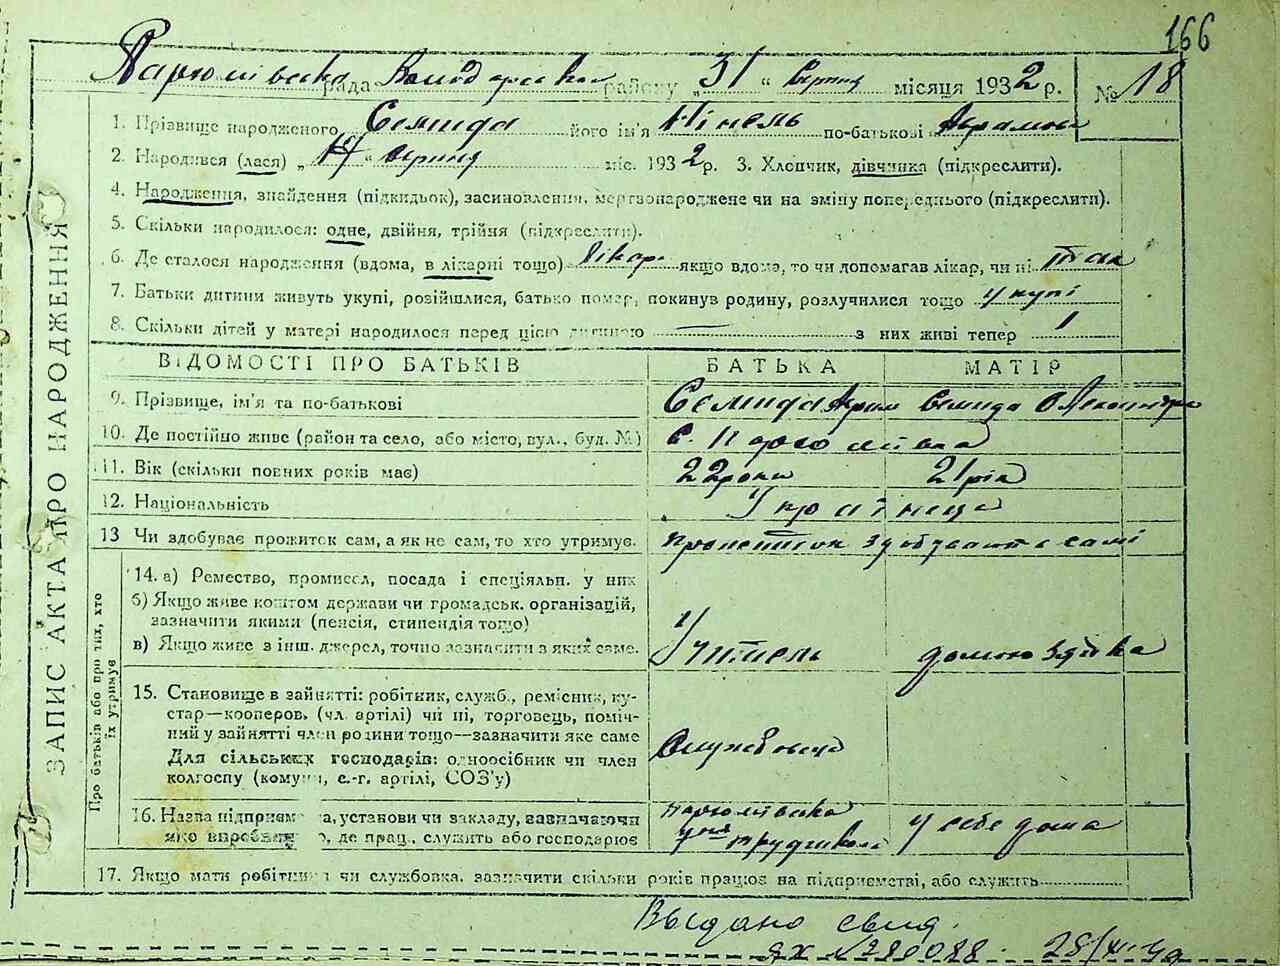 166
рада району „31“ серпня місяця 1932 р. № 18
1. Прізвище народженого Семида його ім'я Нінель по-батькові
2. Народився (лася) „ “ серпня міс. 1932 р. 3. Хлопчик, дівчинка (підкреслити).
4. Народження, знайдення (підкидьок), засиновлення, мертвонароджене чи на зміну попереднього (підкреслити).
5. Скільки народилося: одне, двійня, трійня (підкреслити).
6. Де сталося народження (вдома, в лікарні тощо) лікар. якщо вдома, то чи допомагав лікар, чи ні так
7. Батьки дитини живуть укупі, розійшлися, батько помер, покинув родину, розлучилися тощо укупі
8. Скільки дітей у матері народилося перед цією дитиною — з них живі тепер 1
ЗАПИС АКТА ПРО НАРОДЖЕННЯ
ВІДОМОСТІ ПРО БАТЬКІВ БАТЬКА МАТІР
9. Прізвище, ім'я та по-батькові Семида Семида
10. Де постійно живе (район та село, або місто, вул., буд. №) с.
11. Вік (скільки повних років має) 22 роки 21 рік
12. Національність Українці
13 Чи здобуває прожиток сам, а як не сам, то хто утримує. прожиток здобувають самі
Про батьків або про тих, хто
їх утримує
14. а) Ремество, промисел, посада і спеціяльн. у них
б) Якщо живе коштом держави чи громадськ. організацій,
зазначити якими (пенсія, стипендія тощо)
в) Якщо живе з інш. джерел, точно зазначити з яких саме. Учитель домогосядівка
15. Становище в зайнятті: робітник, служб., ремісник, ку-
стар—кооперов. (чл. артілі) чи ні, торговець, поміч-
ний у зайнятті член родини тощо—зазначити яке саме
Службовець
Для сільських господарів: одноосібник чи член
колгоспу (комуни, с.-г. артілі, СОЗ'у)
16. Назва підприємства, установи чи закладу, зазначаючи
яко виробництво, де прац., служить або господарює у себе дома
17. Якщо мати робітниця чи службовка, зазначити скільки років працює на підприємстві, або служить
Выдано свид.
ЯХ №280088.